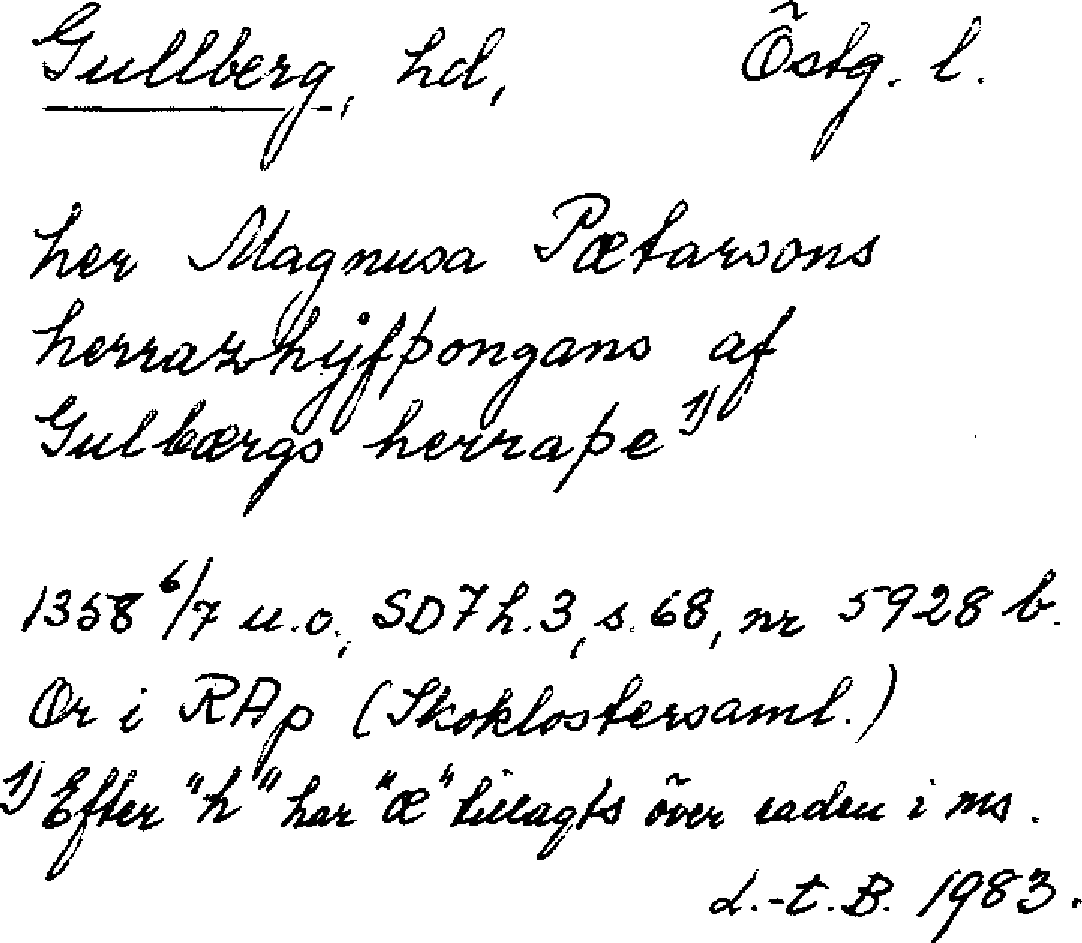 Gullberg, hd, Östg. l.
her Magnusa Pætarsons
herrazhyfþongans af
Gulbærgs herraþe 1)
1358 6/7 u.o., SD 7 h. 3, s. 68, nr 5928 b.
Or i RAp (Skoklostersaml.)
1) Efter "h" har "æ" tillagts över raden i ms.
L.-t. B. 1983.